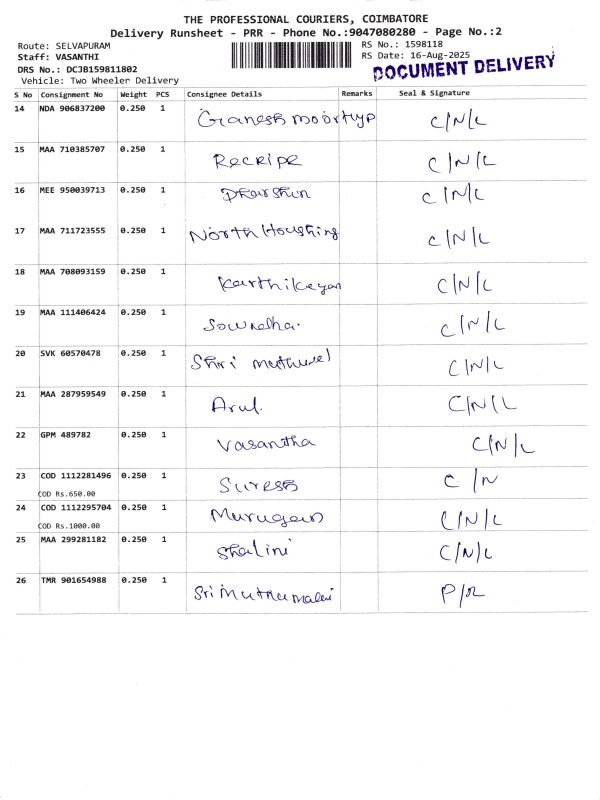 THE PROFESSIONAL COURIERS, COIMBATORE
Delivery Runsheet - PRR - Phone No.:9047080280 - Page No.:2
Route: SELVAPURAM RS No.: 1598118
Staff: VASANTHI RS Date: 16-Aug-2025
DRS No.: DCJB159811802 DOCUMENT DELIVERY
Vehicle: Two Wheeler Delivery
S No Consignment No Weight PCS Consignee Details Remarks Seal & Signature
14 NDA 906837200 0.250 1 Ganesh moorthyp C/N/L
15 MAA 710385707 0.250 1 Recripe C/N/L
16 MEE 950039713 0.250 1 Dharshin C/N/L
17 MAA 711723555 0.250 1 North Houshing C/N/L
18 MAA 708093159 0.250 1 Karthikeyan C/N/L
19 MAA 111406424 0.250 1 C/N/L
20 SVK 60570478 0.250 1 Shri muthuvel C/N/L
21 MAA 287959549 0.250 1 Arul. C/N/L
22 GPM 489782 0.250 1 Vasantha C/N/L
23 COD 1112281496 0.250 1 Suresh C/N
COD Rs.650.00
24 COD 1112295704 0.250 1 Murugan C/N/L
COD Rs.1000.00
25 MAA 299281182 0.250 1 Shalini C/N/L
26 TMR 901654988 0.250 1 Sri Muthumalai